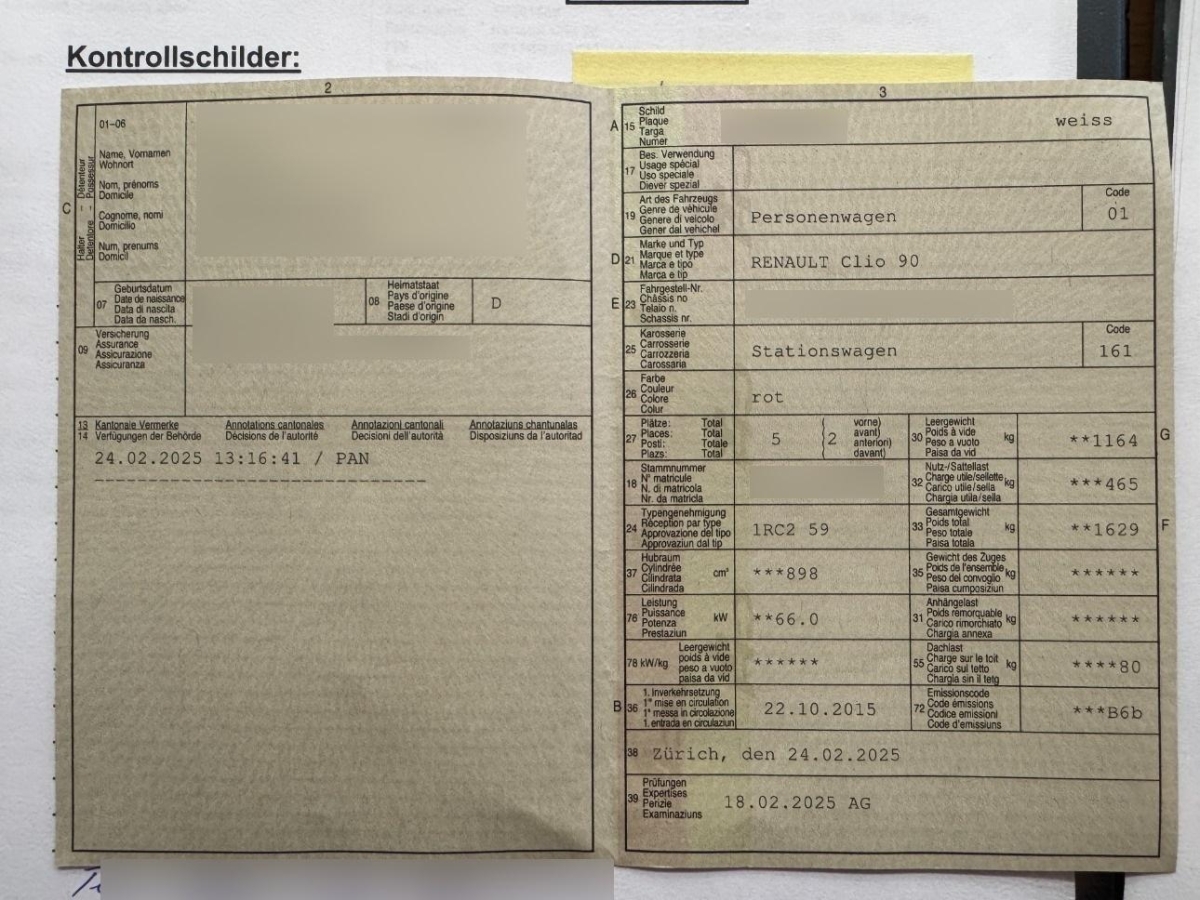 Kontrollschilder:
2
C
Halter – Détenteur
Detentore – Possessur
01–06
Name, Vornamen
Wohnort
Nom, prénoms
Domicile
Cognome, nomi
Domicilio
Num, prenums
Domicil
07
Geburtsdatum
Date de naissance
Data di nascita
Data da nasch.
08
Heimatstaat
Pays d'origine
Paese d'origine
Stadi d'origin
D
09
Versicherung
Assurance
Assicurazione
Assicuranza
13 Kantonale Vermerke Annotations cantonales Annotazioni cantonali Annotaziuns chantunalas
14 Verfügungen der Behörde Décisions de l'autorité Decisioni dell'autorità Disposiziuns da l'autoritad
24.02.2025 13:16:41 / PAN
--------------------------------
3
A 15
Schild
Plaque
Targa
Numer
weiss
17
Bes. Verwendung
Usage spécial
Uso speciale
Diever spezial
19
Art des Fahrzeugs
Genre de véhicule
Genere di veicolo
Gener dal vehichel
Personenwagen
Code
01
D 21
Marke und Typ
Marque et type
Marca e tipo
Marca e tip
RENAULT Clio 90
E 23
Fahrgestell-Nr.
Châssis no
Telaio n.
Schassis nr.
25
Karosserie
Carrosserie
Carrozzeria
Carossaria
Stationswagen
Code
161
26
Farbe
Couleur
Colore
Colur
rot
27
Plätze: Total
Places: Total
Posti: Totale
Plazs: Total
5
( vorne)
( avant)
2
anteriori)
( davant)
30
Leergewicht
Poids à vide
Peso a vuoto
Paisa da vid
kg
**1164
G
18
Stammnummer
N° matricule
N. di matricola
Nr. da matricla
32
Nutz-/Sattellast
Charge utile/sellette
Carico utile/sella
Chargia utila/sella
kg
***465
24
Typengenehmigung
Réception par type
Approvazione del tipo
Approvaziun dal tip
1RC2 59
33
Gesamtgewicht
Poids total
Peso totale
Paisa totala
kg
**1629
F
37
Hubraum
Cylindrée
Cilindrata
Cilindrada
cm³
***898
35
Gewicht des Zuges
Poids de l'ensemble
Peso del convoglio
Paisa cumposiziun
kg
******
76
Leistung
Puissance
Potenza
Prestaziun
kW
**66.0
31
Anhängelast
Poids remorquable
Carico rimorchiato
Chargia annexa
kg
******
78 kW/kg
Leergewicht
poids à vide
peso a vuoto
paisa da vid
******
55
Dachlast
Charge sur le toit
Carico sul tetto
Chargia sin il tetg
kg
****80
B 36
1. Inverkehrsetzung
1re mise en circulation
1a messa in circolazione
1. entrada en circulaziun
22.10.2015
72
Emissionscode
Code émissions
Codice emissioni
Code d'emissiuns
***B6b
38
Zürich, den 24.02.2025
39
Prüfungen
Expertises
Perizie
Examinaziuns
18.02.2025 AG